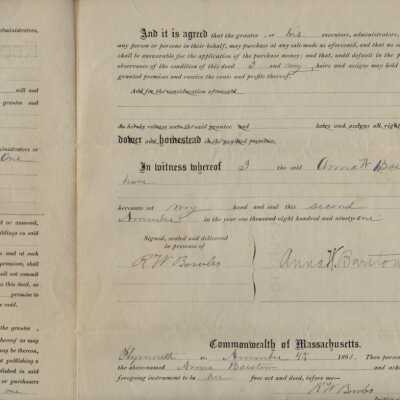 administrators,
And it is agreed that the grantee or his executors, administrators,
any person or persons in their behalf, may purchase at any sale made as aforesaid, and that no
shall be answerable for the application of the purchase money; and that, until default in the
observance of the condition of this deed I and my heirs and assigns may hold
granted premises and receive the rents and profits thereof.
will and
grantee and
And for the consideration aforesaid
do hereby release unto the said grantee and heirs and assigns all right
dower and homestead in the granted premises.
administrators or
One
In witness whereof I the said Anna W
have
hereunto set my hand and seal this second
November in the year one thousand eight hundred and ninety one
Signed, sealed and delivered
in presence of
R W Bowles
Anna W. Barstow
or assessed,
buildings on said
and at such
premises, shall
shall not commit
this deed, as
promise to
be void.
the grantee
hereof may
may be thereon,
publishing a
published in said
or purchasers
one
Commonwealth of Massachusetts.
Plymouth ss. November 4th 1891. Then
the above-named Anna Barstow and
foregoing instrument to be her free act and deed, before me—
R W Bowles